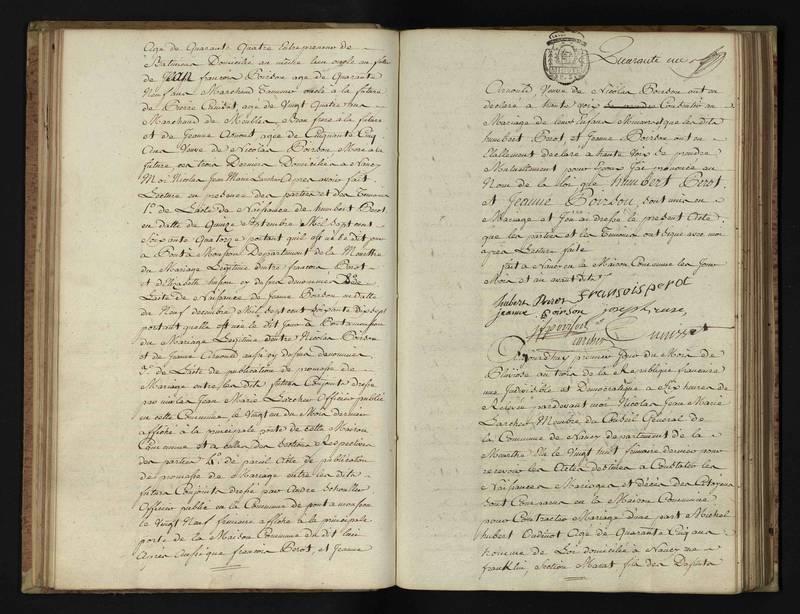 Agé de Quarante Quatre Entrepreneur de
Batimens Domicilié au même lieu oncle au futur
de Jean francois Poirson agé de Quarante
Neuf ans Marchand Tanneur oncle à la future
de Pierre agé de Vingt Quatre ans
Marchand de Meubles, frere à la future
et de Jeanne Arnould agée de Cinquante Cinq
Ans Veuve de Nicolas Poirson Mere à la
future ces trois Derniers Domiciliés à Nancy
Moi Nicolas Jean Marie Larcher après avoir fait
Lecture en presence des parties et des Temoins
1°. de L'acte de Naissance de humbert Perot
en datte du Quinze Septembre Mil Sept cent
Soixante Quatorze portant qu'il est né le dit jour
à Pont à Mousson Departement de la Meurthe
du Mariage Legitime d'entre francois Perot
et d'Elisabeth cy dessus denommés 2° de
L'acte de Naissance de Jeanne Poirson en datte
du Neuf decembre Mil Sept cent Soixante Dix Sept
portant qu'elle est née le dit Jour à Pont à mousson
du Mariage Legitime d'entre Nicolas Poirson
et de Jeanne Arnould aussi cy dessus denommés
3°. de L'acte de publication de promesse de
Mariage entre les Dits futurs Conjoints dressé
par moi Jean Marie Larcher Officier public
en cette Commune le Vingt un du Mois dernier
affiché à la principale porte de cette Maison
Commune et à celles des Sections Respectives
des parties 4°. de pareil Acte de publication
de promesse de Mariage entre les Dits
futurs Conjoints dressé par Andre
Officier public en la Commune de pont a mousson
le Vingt Neuf frimaire affiché à la principale
porte de la Maison Commune du dit lieu
Après aussi que francois Perot, et Jeanne
Quarante un
Arnould Veuve de Nicolas Poirson ont
declaré à haute voix Consentir au
Mariage de leurs Enfans Mineurs que les dits
humbert Perot et Jeanne Poirson ont
Egallement declaré à haute Voix se prendre
Mutuellement pour Epoux J'ai prononcé au
Nom de la Loi que humbert Perot
et Jeanne Poirson, Sont unis en
Mariage et J'en ai dressé le present Acte
que les parties et les Temoins ont signé avec moi
après Lecture faite
fait à Nancy en la Maison Commune les Jour
Mois et an avant dits
hubert Perot fransois perot
jeanne poirson
Larcher
Aujourd'huy premier Jour du Mois de
Pluviose an trois de la Republique francaise
une Indivisible et Democratique à Six heures de
Relevée pardevant moi Nicolas Jean Marie
Larcher Membre du Conseil Général de
la Commune de Nancy departement de la
Meurthe Elu le Vingt huit frimaire dernier pour
recevoir les Actes destinés à Constater les
Naissances Mariages et décès des Citoyens
Sont Comparus en la Maison Commune
pour Contracter Mariage d'une part Michel
hubert Oudinot Agé de Quarante Cinq ans
homme de Loi domicilié à Nancy rue
franklin, Section Marat fils des Defunts